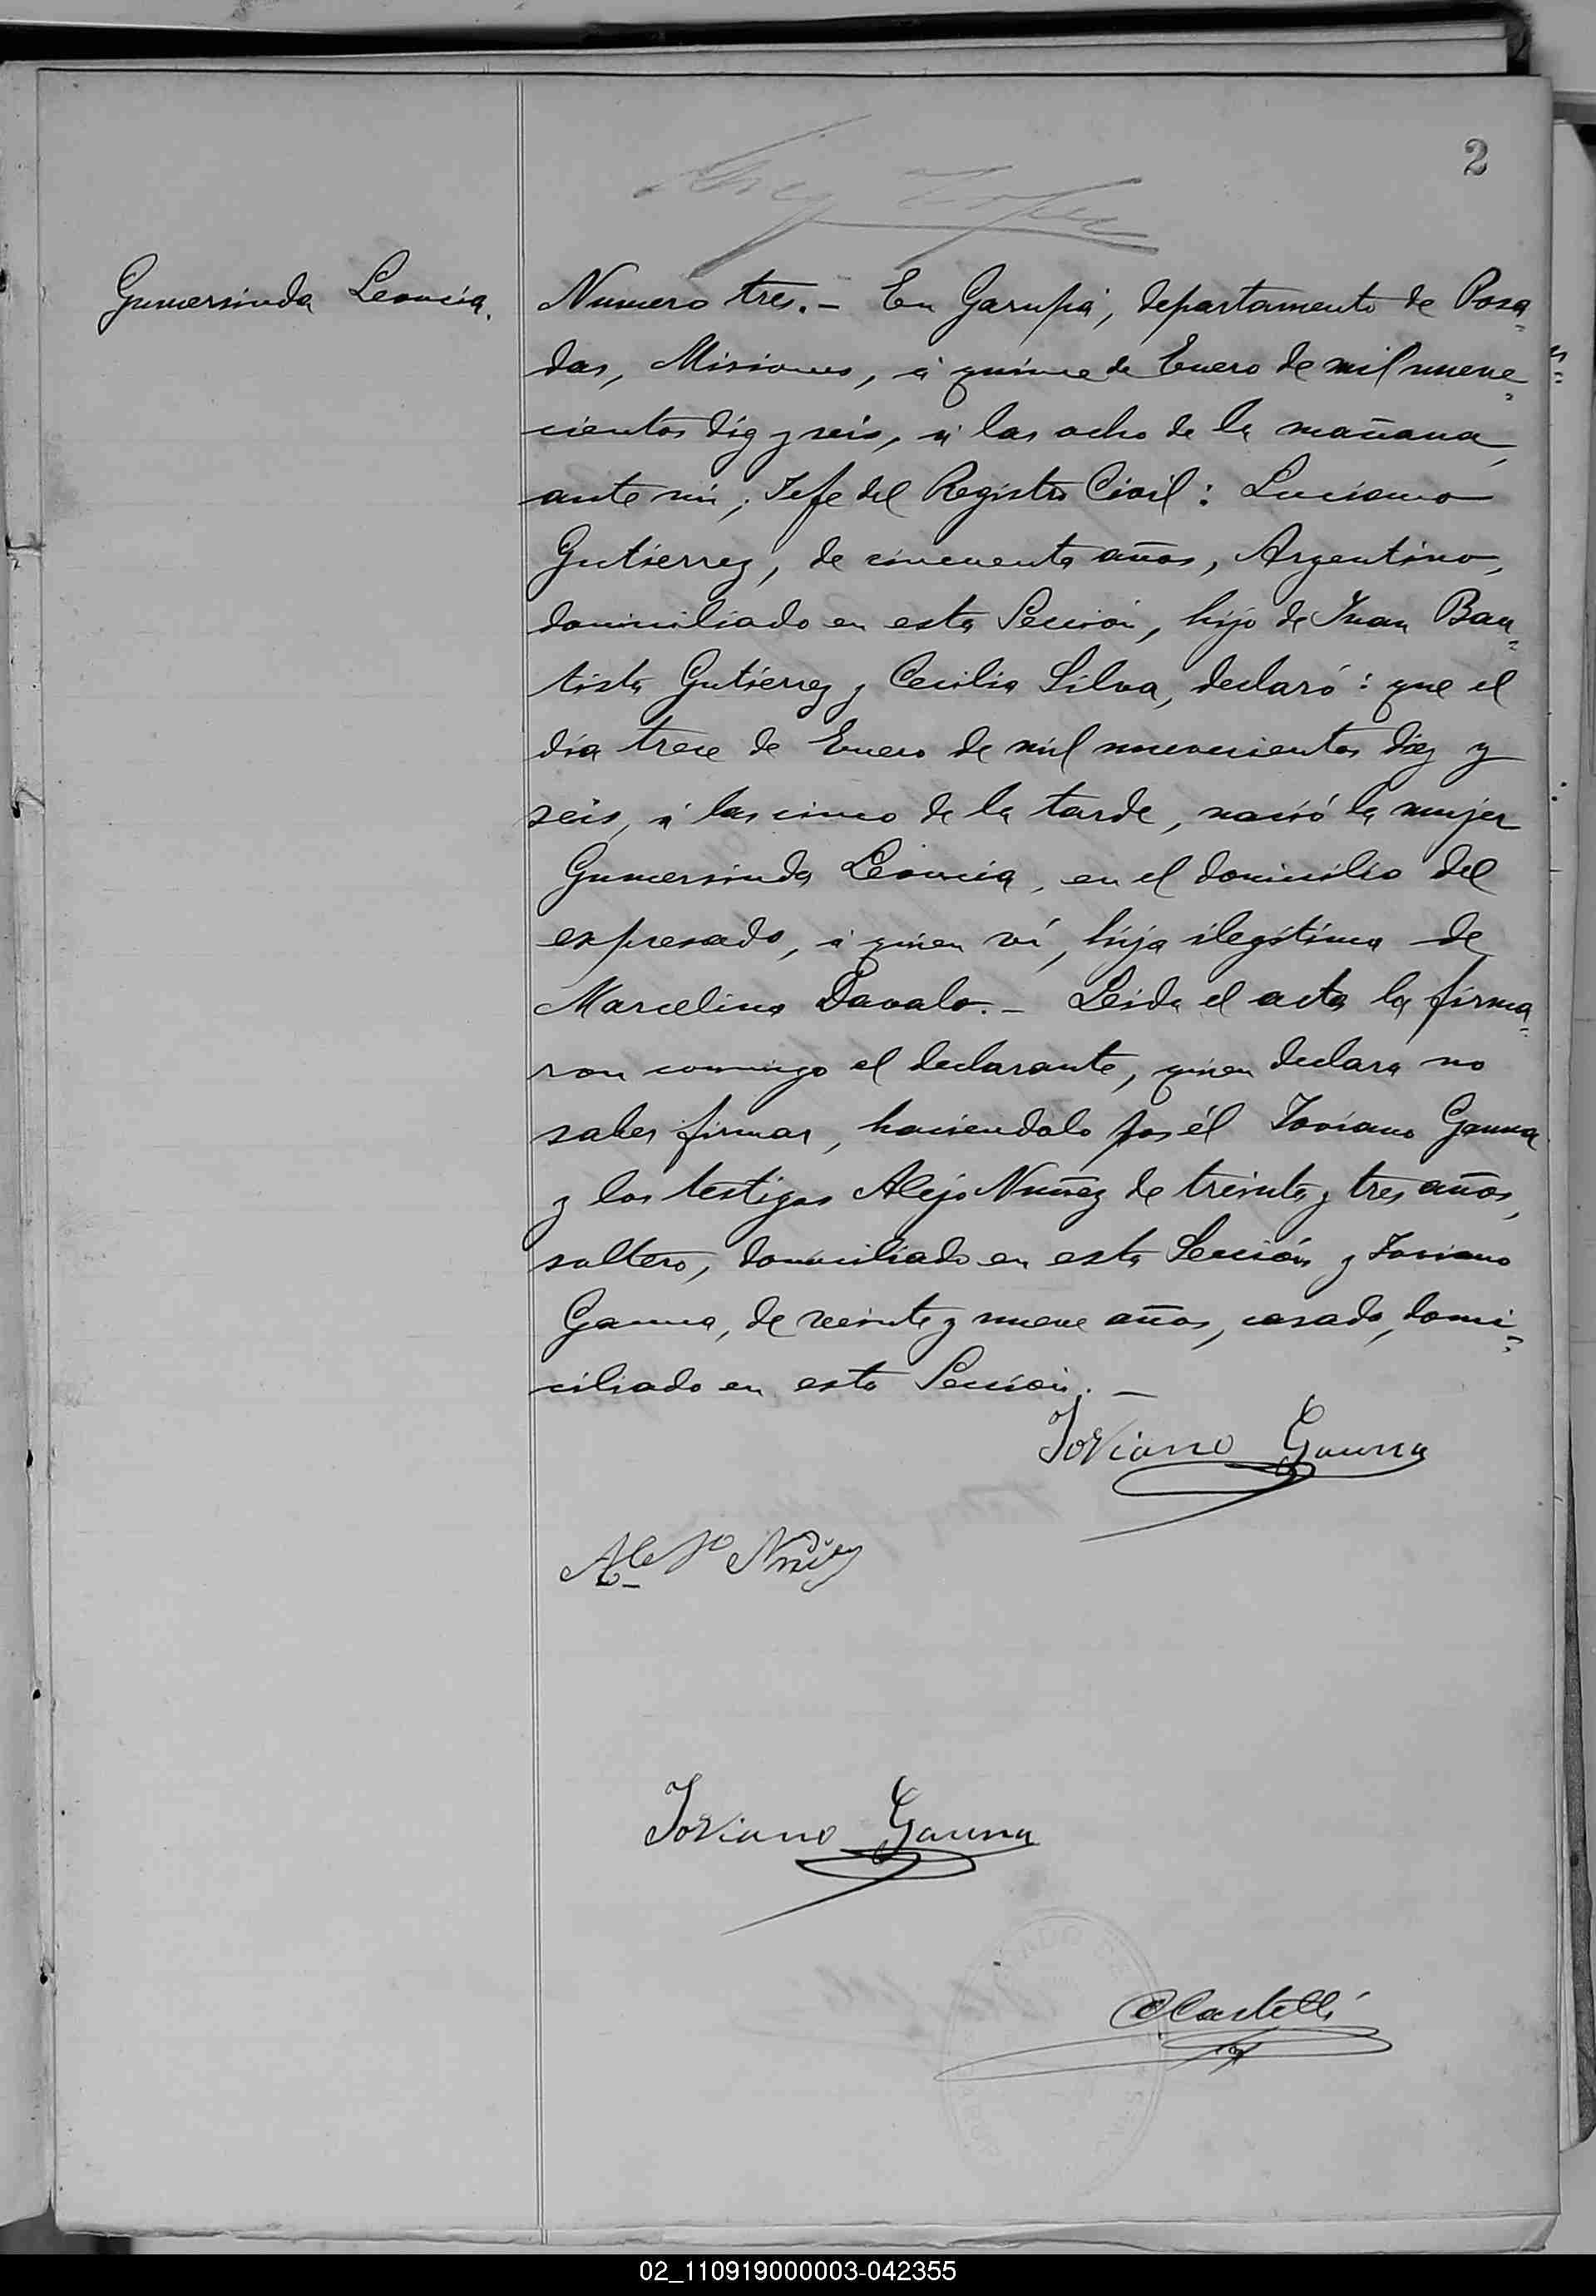 2
Gumersinda Leoncia.
Numero tres.- En Garupá, departamento de Posa=
das, Misiones, á quince de Enero de mil nueve=
cientos diez y seis, á las ocho de la mañana,
ante mí, Jefe del Registro Civil: Luciano
Gutierrez, de cincuenta años, Argentino,
domiciliado en esta Sección, hijo de Juan Bau=
tista Gutierrez y Cecilia Silva, declaró: que el
día trece de Enero de mil novecientos diez y
seis, á las cinco de la tarde, nació la mujer
Gumersinda Leoncia, en el domicilio del
expresado, á quien ví, hija ilegítima de
Marcelina Davalo.- Leida el acta la firma=
ron conmigo el declarante, quien declara no
saber firmar, haciendolo por él Joviano Gauna
y los testigos Alejo Nuñez de treinta y tres años,
soltero, domiciliado en esta Sección y Joviano
Gauna, de veinte y nueve años, casado, domi=
ciliado en esta Sección.-
Joviano Gauna
Alejo Nuñez
Joviano Gauna
Castelli
02_110919000003-042355